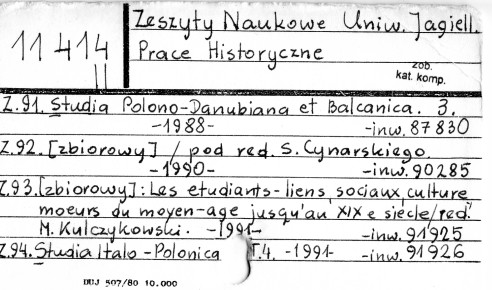 11414
II
Zeszyty Naukowe Uniw. Jagiell.
Prace Historyczne
zob.
kat. komp.
Z.91. Studia Polono-Danubiana et Balcanica. 3.
-1988- -inw. 87830
Z.92. [zbiorowy] / pod red. S. Cynarskiego.
-1990- -inw. 90285
Z.93. [zbiorowy]: Les etudiants-liens sociaux, culture,
moeurs du moyen-age jusqu'au XIX e siècle/red.
M. Kulczykowski. -1991- -inw. 91925
Z.94. Studia Italo-Polonica T.4. -1991- -inw. 91926
DUJ 507/80 10.000